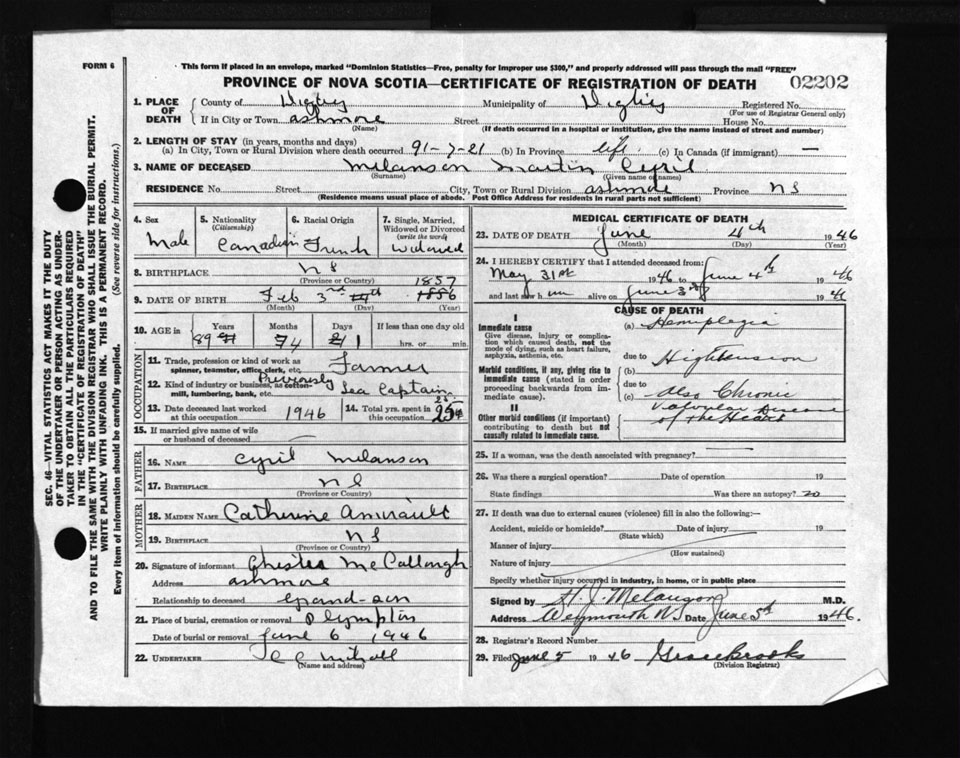 FORM 6
This form if placed in an envelope, marked "Dominion Statistics—Free, penalty for improper use $300," and properly addressed will pass through the mail "FREE"
PROVINCE OF NOVA SCOTIA—CERTIFICATE OF REGISTRATION OF DEATH 02202
SEC. 46—VITAL STATISTICS ACT MAKES IT THE DUTY
OF THE UNDERTAKER OR PERSON ACTING AS UNDER-
TAKER TO OBTAIN ALL THE PARTICULARS REQUIRED
IN THE "CERTIFICATE OF REGISTRATION OF DEATH"
AND TO FILE THE SAME WITH THE DIVISION REGISTRAR WHO SHALL ISSUE THE BURIAL PERMIT.
WRITE PLAINLY WITH UNFADING INK. THIS IS A PERMANENT RECORD.
Every item of information should be carefully supplied. (See reverse side for instructions.)
1. PLACE OF DEATH
County of Digby Municipality of Digby Registered No.
(For use of Registrar General only)
If in City or Town ashmore Street House No.
(Name) (If death occurred in a hospital or institution, give the name instead of street and number)
2. LENGTH OF STAY (in years, months and days)
(a) In City, Town or Rural Division where death occurred 91-7-21 (b) In Province life (c) In Canada (if immigrant) —
3. NAME OF DECEASED Melanson Martin Cyril
(Surname) (Given name or names)
RESIDENCE No. Street City, Town or Rural Division ashmore Province NS
(Residence means usual place of abode. Post Office Address for residents in rural parts not sufficient)
4. Sex
Male
5. Nationality
(Citizenship)
Canadian
6. Racial Origin
French
7. Single, Married,
Widowed or Divorced
(write the word)
Widowed
8. BIRTHPLACE NS
(Province or Country)
1857
9. DATE OF BIRTH Feb 3rd 1856
(Month) (Day) (Year)
10. AGE in
Years Months Days If less than one day
89 4 1 hrs. or min.
OCCUPATION
11. Trade, profession or kind of work as
spinner, teamster, office clerk, etc. Farmer
12. Kind of industry or business, as cotton-
mill, lumbering, bank, etc. Previously Sea Captain
13. Date deceased last worked
at this occupation 1946
14. Total yrs. spent in
this occupation 25
15. If married give name of wife
or husband of deceased —
FATHER
16. NAME Cyril Melanson
17. BIRTHPLACE NS
(Province or Country)
MOTHER
18. MAIDEN NAME Catherine Amirault
19. BIRTHPLACE NS
(Province or Country)
20. Signature of informant Chisles McCullough
Address ashmore
Relationship to deceased Grand-son
21. Place of burial, cremation or removal Plympton
Date of burial or removal June 6 1946
22. UNDERTAKER
(Name and address)
MEDICAL CERTIFICATE OF DEATH
23. DATE OF DEATH June 4th 1946
(Month) (Day) (Year)
24. I HEREBY CERTIFY that I attended deceased from:
May 31st 1946 to June 4th 1946
and last saw him alive on June 3rd 1946
CAUSE OF DEATH
I
Immediate cause
Give disease, injury or complica-
tion which caused death, not the
mode of dying, such as heart failure,
asphyxia, asthenia, etc.
(a) Hemiplegia
due to
Morbid conditions, if any, giving rise to
immediate cause (stated in order
proceeding backwards from im-
mediate cause).
(b) Hightension
due to
(c) Also Chronic
II
Other morbid conditions (if important)
contributing to death but not
causally related to immediate cause.
Valvular Disease
of the Heart
25. If a woman, was the death associated with pregnancy? —
26. Was there a surgical operation? Date of operation 19
State findings Was there an autopsy? no
27. If death was due to external causes (violence) fill in also the following:—
Accident, suicide or homicide? Date of injury 19
(State which)
Manner of injury
(How sustained)
Nature of injury
Specify whether injury occurred in industry, in home, or in public place
Signed by H. J. Melançon M.D.
Address Weymouth NS Date June 5th 1946.
28. Registrar's Record Number
29. Filed June 5 1946 Grace Brooks
(Division Registrar)